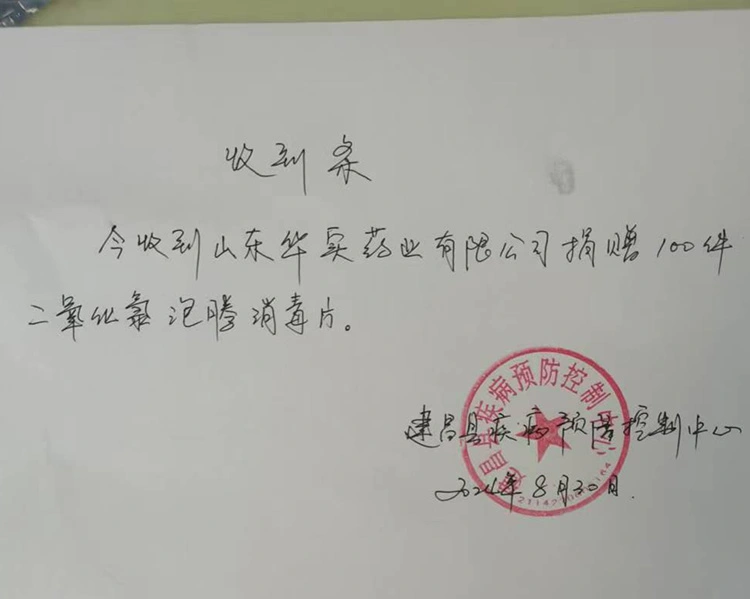 收到条
今收到山东华实药业有限公司捐赠100件
二氧化氯泡腾消毒片。
建昌县疾病预防控制中心
建昌县疾病预防控制中心
2024年8月30日.